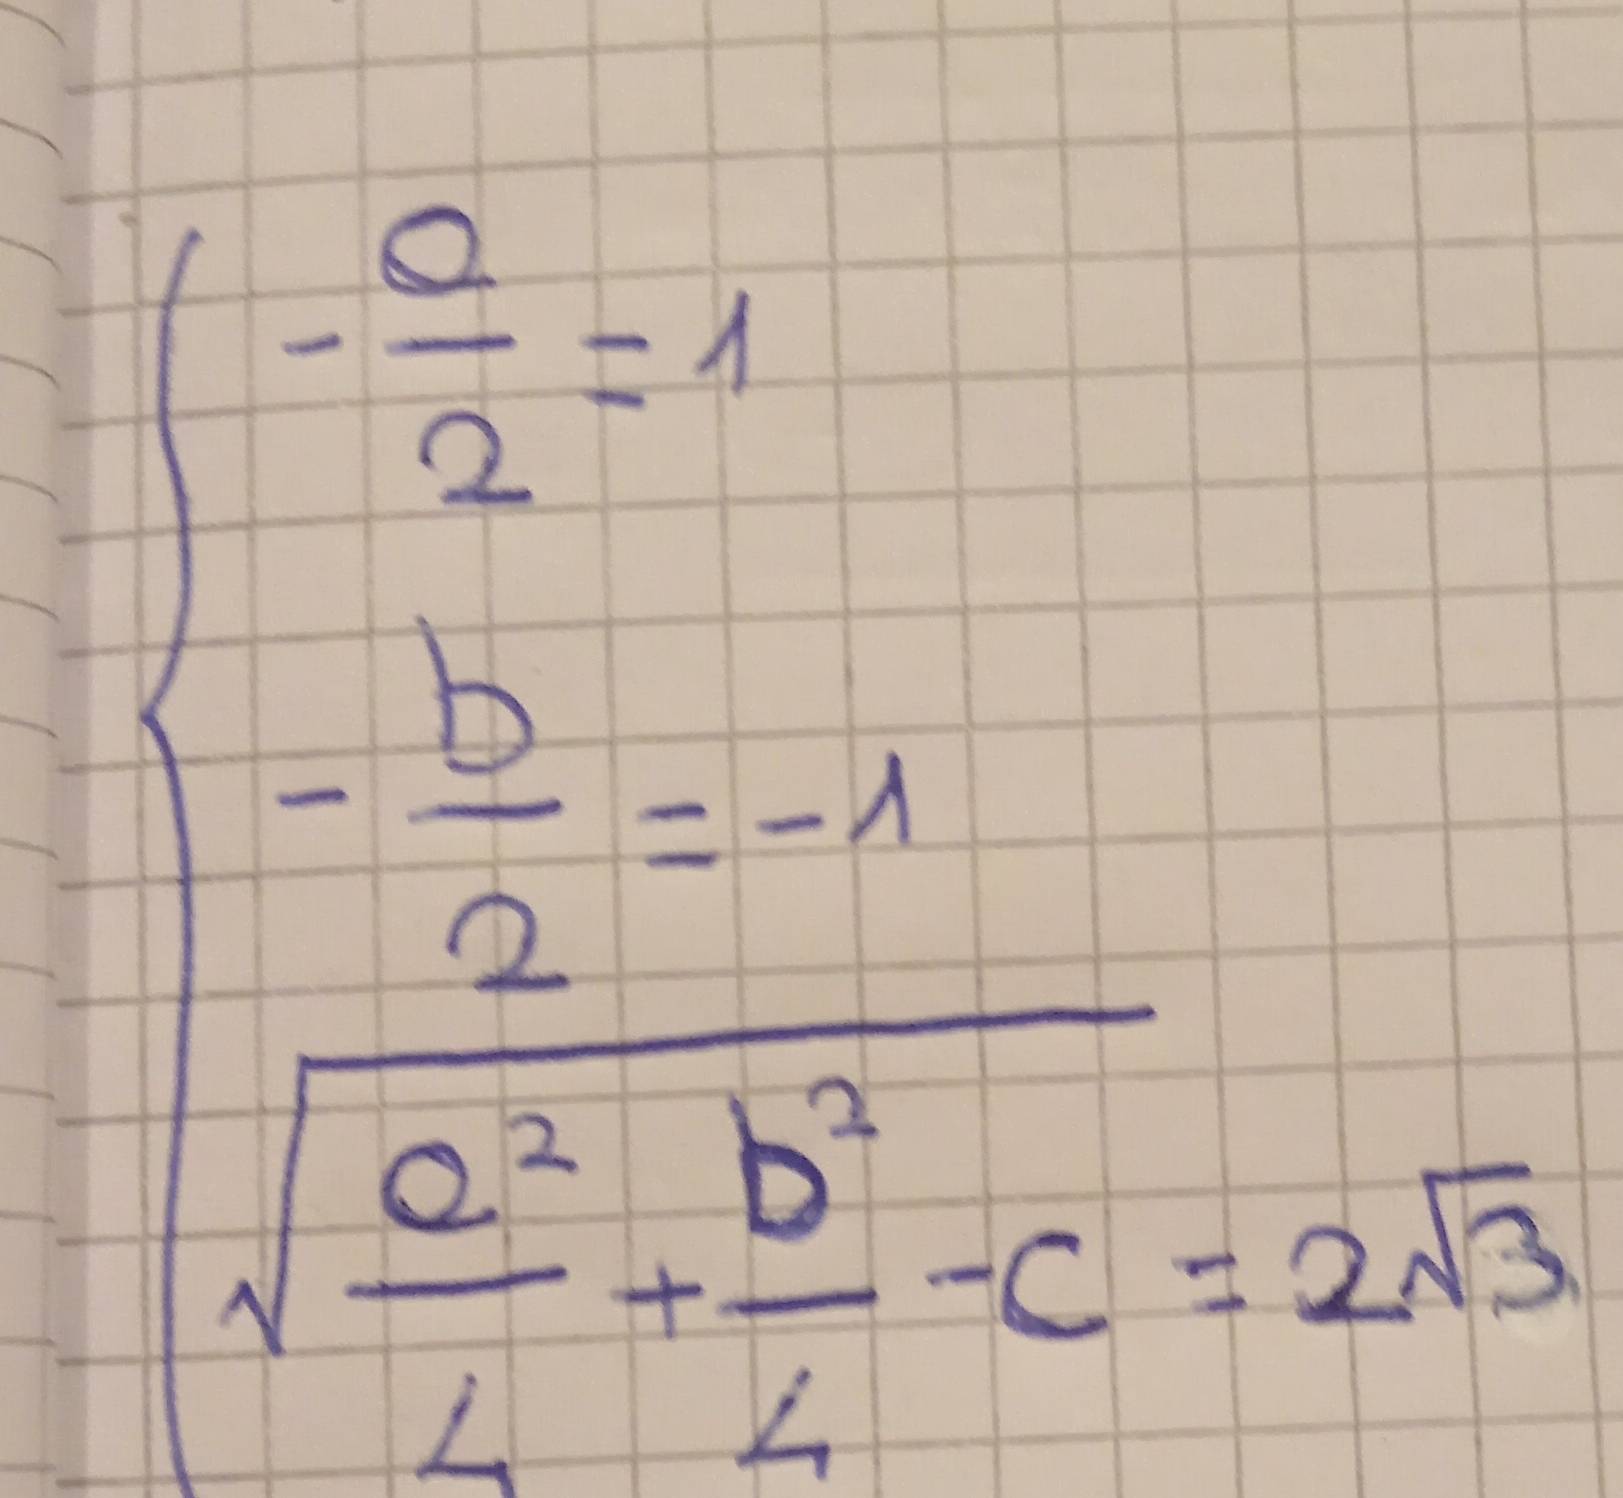 - a/2 = 1
- b/2 = -1
√(a²/4 + b²/4 - c) = 2√3